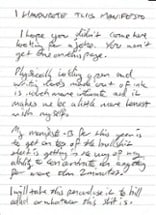 I HANDWROTE THIS MANIFESTO
I hope you didn't come here
looking for a joke. You won't
get one on this page.
Physically holding a pen and
writing words made out of ink
is much more intimate and it
makes me be a little more honest
with myself.
My manifesto for this year is
to get on top of the bullshit
that is getting in the way of my
ability to concentrate on anything
for more than 2 minutes!
I will take this personal and to hell
or whatever this shit is.